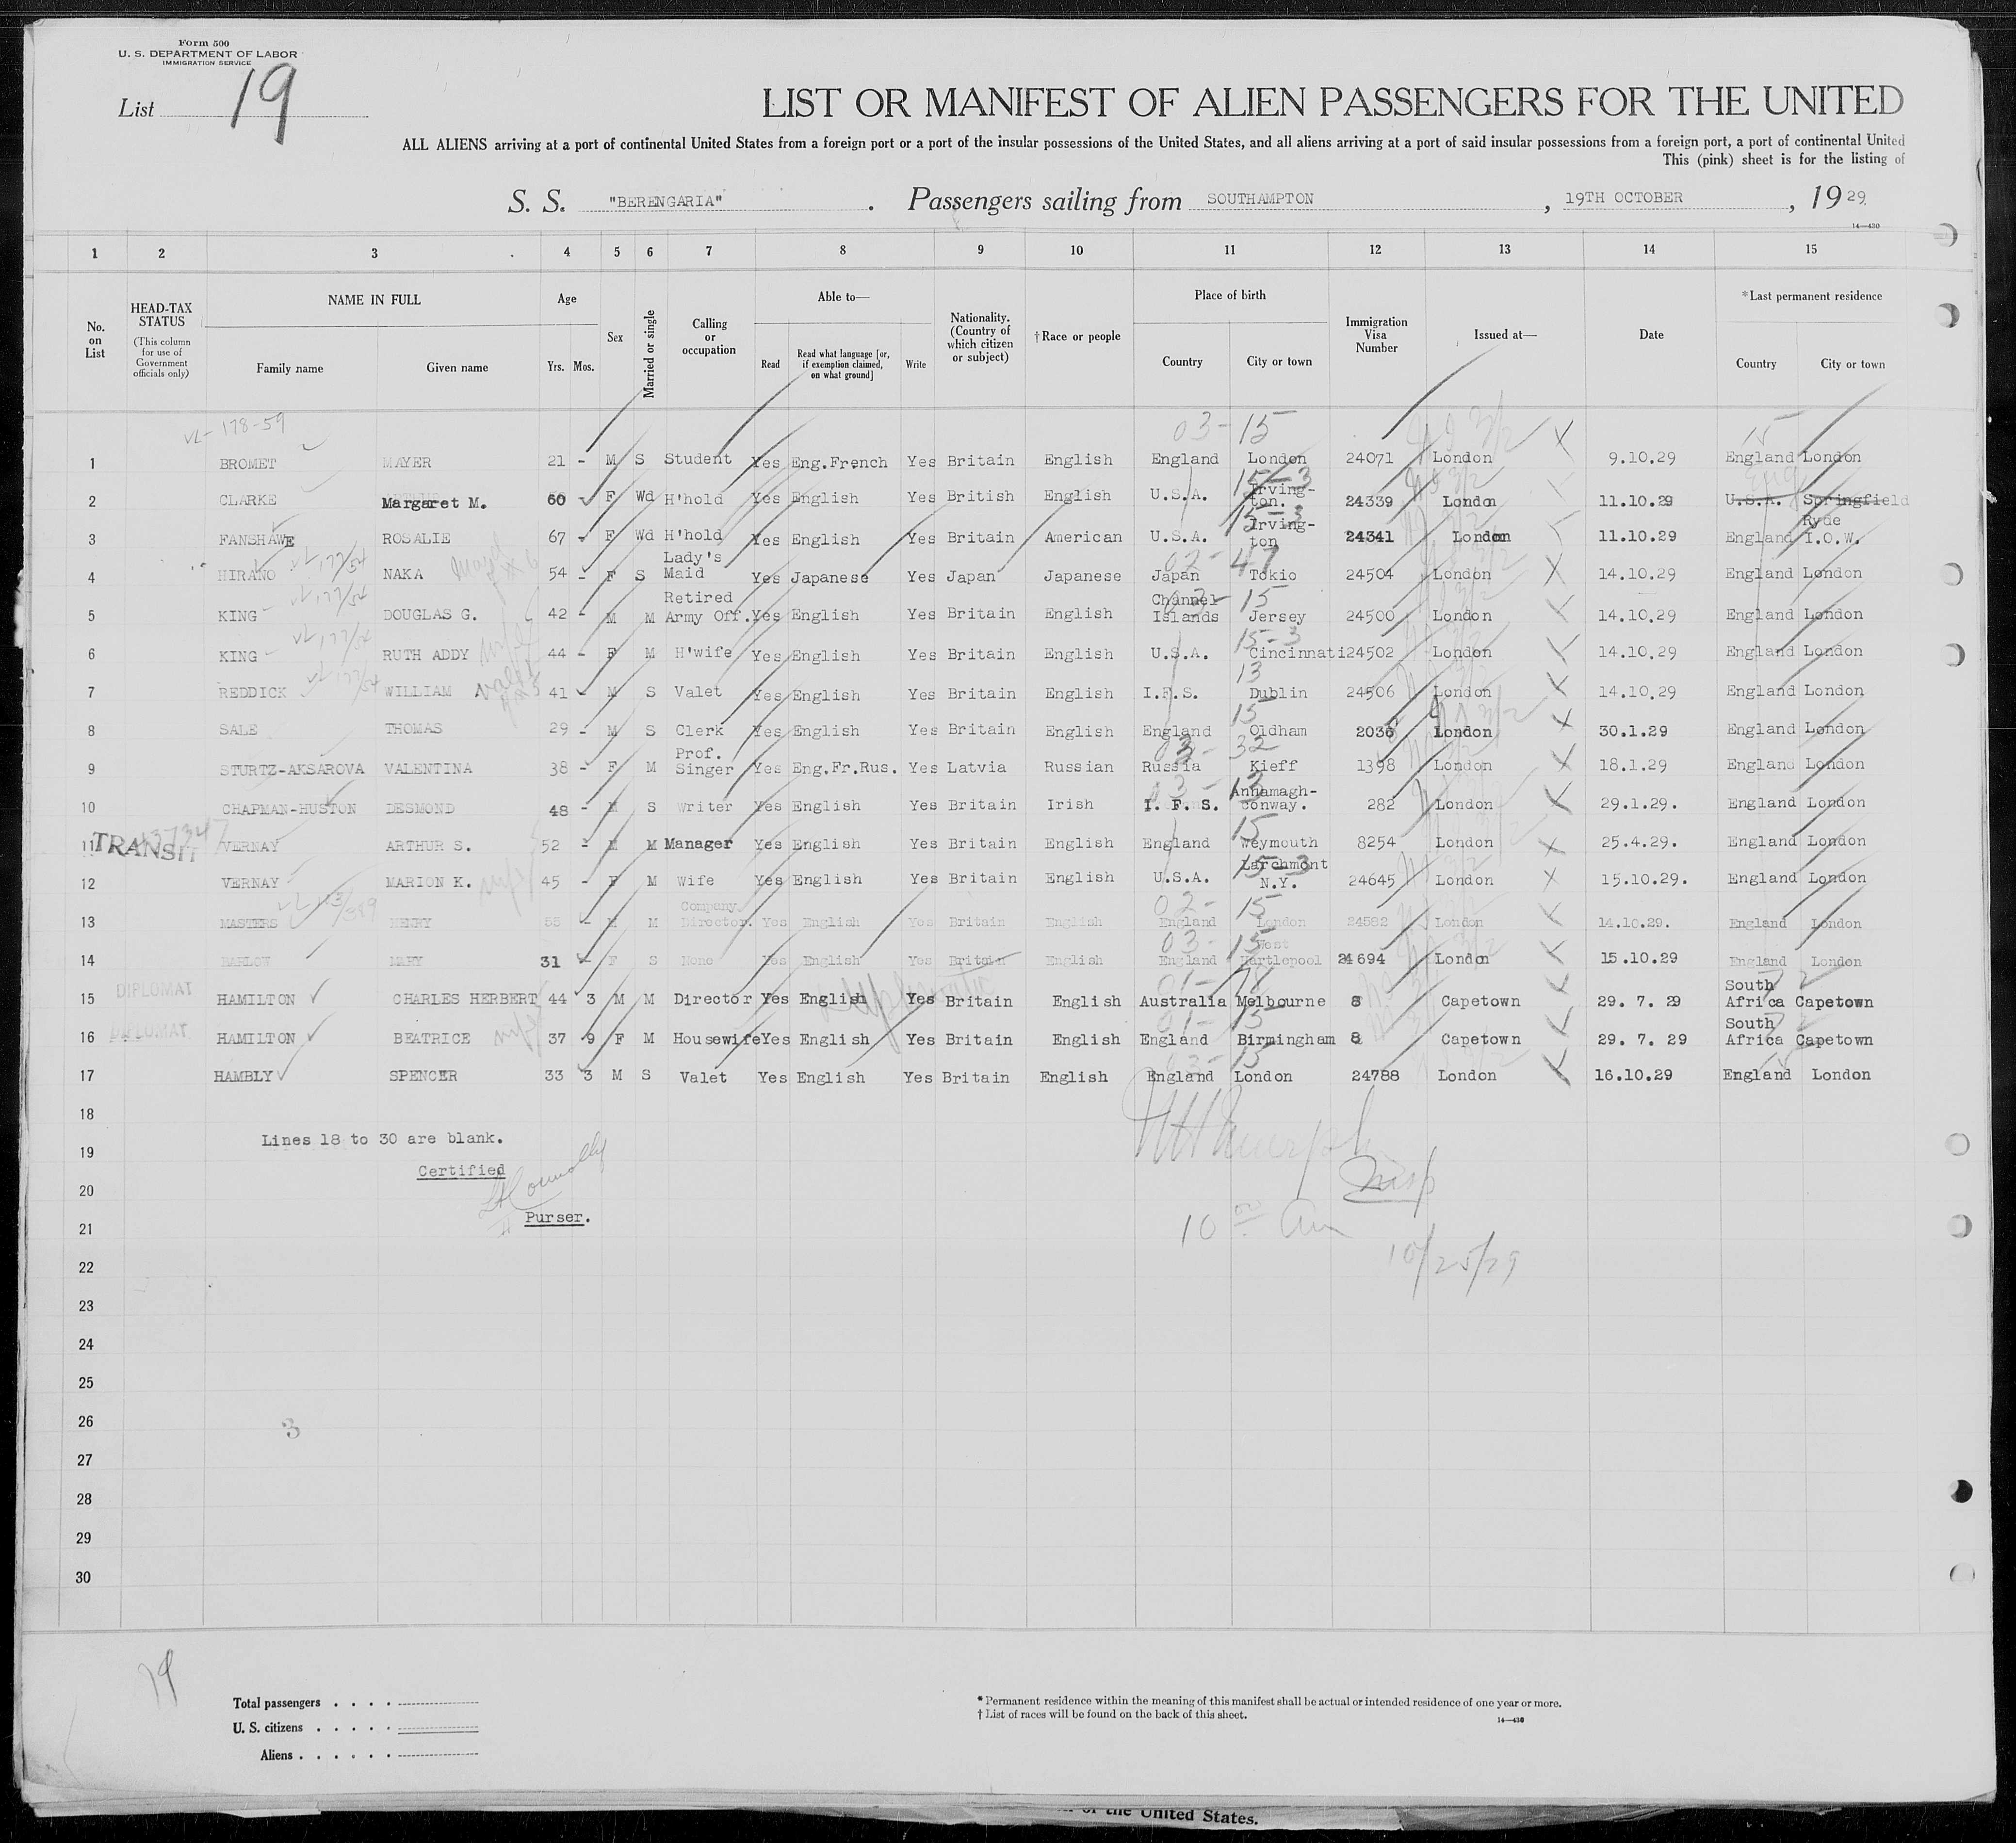 Form 500
U. S. DEPARTMENT OF LABOR
IMMIGRATION SERVICE
List 19
LIST OR MANIFEST OF ALIEN PASSENGERS FOR THE UNITED
ALL ALIENS arriving at a port of continental United States from a foreign port or a port of the insular possessions of the United States, and all aliens arriving at a port of said insular possessions from a foreign port, a port of continental United
This (pink) sheet is for the listing of
S. S. "BERENGARIA". Passengers sailing from SOUTHAMPTON, 19TH OCTOBER, 1929.
14—430
1 2 3 4 5 6 7 8 9 10 11 12 13 14 15
No. on List
HEAD-TAX STATUS
(This column for use of Government officials only)
NAME IN FULL
Family name Given name
Age
Yrs. Mos.
Sex
Married or single
Calling or occupation
Able to—
Read Read what language [or, if exemption claimed, on what ground] Write
Nationality. (Country of which citizen or subject)
† Race or people
Place of birth
Country City or town
Immigration Visa Number
Issued at—
Date
* Last permanent residence
Country City or town
VL-178-59 03-15 15
1 BROMET MAYER 21 - M S Student Yes Eng.French Yes Britain English England London 24071 London 9.10.29 England London
15-3
2 CLARKE Margaret M. 60 F Wd H'hold Yes English Yes British English U.S.A. Irving-ton. 24339 London 11.10.29 U.S.A. Springfield
15-3
3 FANSHAWE ROSALIE 67 - F Wd H'hold Yes English Yes Britain American U.S.A. Irving-ton 24341 London 11.10.29 England Ryde I.O.W.
VL 177/54 02-47
4 HIRANO NAKA 54 - F S Lady's Maid Yes Japanese Yes Japan Japanese Japan Tokio 24504 London 14.10.29 England London
VL 177/54 15
5 KING DOUGLAS G. 42 - M M Retired Army Off. Yes English Yes Britain English Channel Islands Jersey 24500 London 14.10.29 England London
VL 177/54 15-3
6 KING RUTH ADDY 44 - F M H'wife Yes English Yes Britain English U.S.A. Cincinnati 24502 London 14.10.29 England London
VL 177/54 13
7 REDDICK WILLIAM valet 41 - M S Valet Yes English Yes Britain English I.F.S. Dublin 24506 London 14.10.29 England London
15
8 SALE THOMAS 29 - M S Clerk Yes English Yes Britain English England Oldham 2036 London 30.1.29 England London
03-32
9 STURTZ-AKSAROVA VALENTINA 38 - F M Prof. Singer Yes Eng.Fr.Rus. Yes Latvia Russian Russia Kieff 1398 London 18.1.29 England London
03-13
10 CHAPMAN-HUSTON DESMOND 48 - M S Writer Yes English Yes Britain Irish I. F. S. Annamagh-conway. 282 London 29.1.29. England London
15
11 TRANSIT VERNAY ARTHUR S. 52 - M M Manager Yes English Yes Britain English England Weymouth 8254 London 25.4.29. England London
15-3
12 VERNAY MARION K. wife 45 - F M Wife Yes English Yes Britain English U.S.A. Larchmont N.Y. 24645 London 15.10.29. England London
02-15
13 MASTERS HENRY 55 - M M Company Director. Yes English Yes Britain English England London 24582 London 14.10.29. England London
03-15
14 BARLOW MARY 31 - F S None Yes English Yes Britain English England West Hartlepool 24694 London 15.10.29 England London
01-78 72
15 DIPLOMAT HAMILTON CHARLES HERBERT 44 3 M M Director Yes English Yes Britain English Australia Melbourne 8 Capetown 29. 7. 29 South Africa Capetown
Diplomatic
01-15 72
16 DIPLOMAT HAMILTON BEATRICE wife 37 9 F M Housewife Yes English Yes Britain English England Birmingham 8 Capetown 29. 7. 29 South Africa Capetown
03-15 15
17 HAMBLY SPENCER 33 3 M S Valet Yes English Yes Britain English England London 24788 London 16.10.29 England London
18
Lines 18 to 30 are blank.
19
Certified
20
Insp
Purser.
21
10 00 Am
22
10/25/29
23
24
25
26
3
27
28
29
30
19
Total passengers
U. S. citizens
Aliens
* Permanent residence within the meaning of this manifest shall be actual or intended residence of one year or more.
† List of races will be found on the back of this sheet.
14—430
of the United States.